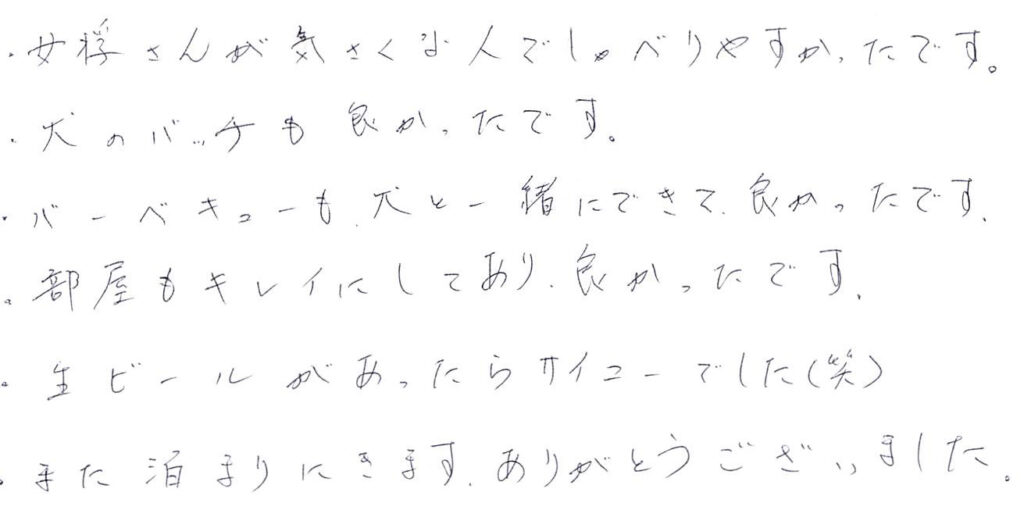 ・女将さんが気さくな人でしゃべりやすかったです。
・犬のバッチも良かったです。
・バーベキューも、犬と一緒にできて、良かったです、
・部屋もキレイにしてあり、良かったです、
・生ビールがあったらサイコーでした(笑)
・また泊まりにきます、ありがとうございました。